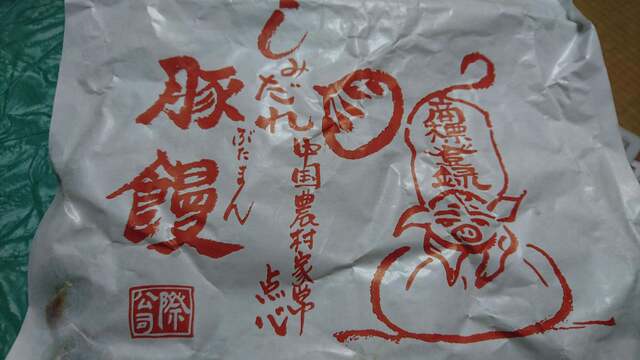 しみだれ
豚饅
ぶたまん
中国農村家常点心
商標登録
際公司